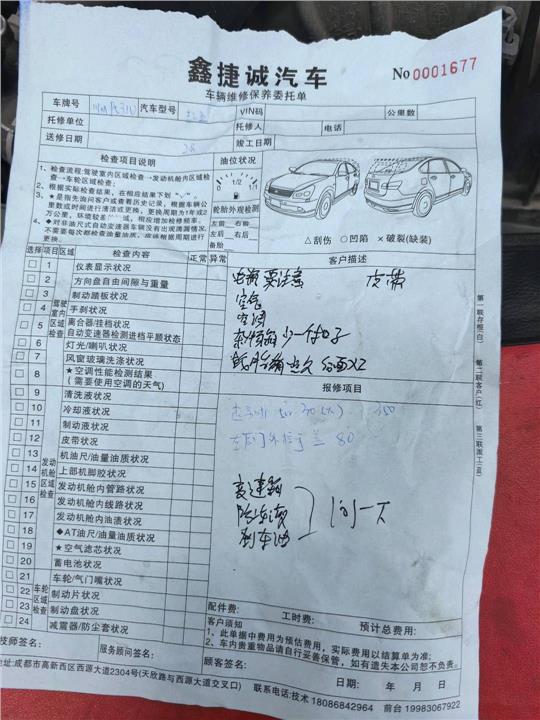 鑫捷诚汽车
No 0001677
车辆维修保养委托单
车牌号 汽车型号 VIN码 公里数
托修单位 托修人 电话
送修日期 28 竣工日期
检查项目说明 油位状况
1、检查流程:驾驶室内区域检查→发动机舱内区域检
查→车轮区域检查;
2、根据实际检查结果,在相应结果下划“√”,
3、★是指先询问客户或查看历史记录,根据车辆公
里数或时间进行清洁或更换,更换周期为1年或2
万公里,环境较差 相应增加检修频率。
4、◆对非油尺式自动变速器车辆没有出现滴漏情况,
不需要每次都检查油量油质,应该根据周期进行
更换。
0 1/2 1/1
轮胎外观检测
左前 右前
左后 右后
备胎
△刮伤 ○凹陷 ×破裂(缺装)
选择 项目 区域 检查内容 正常 异常
客户描述
驾驶室内区域检查
1 仪表显示状况
2 方向盘自由间隙与重量
3 制动踏板状况
4 手刹状况
5 离合器/挂档状况
自动变速器检测进档平顺状态
6 灯光/喇叭状况
7 风窗玻璃洗涤状况
8 ★空调性能检测结果
(需要使用空调的天气)
发动机舱区域检查
9 清洗液状况
10 冷却液状况
11 制动液状况
12 皮带状况
13 机油尺/油量油质状况
14 上部机脚胶状况
15 发动机舱内管路状况
16 发动机舱内线路状况
17 发动机舱内油渍状况
18 ◆AT油尺/油量油质状况
19 ★空气滤芯状况
20 蓄电池状况
车轮区域检查
21 车轮/气门嘴状况
22 制动片状况
23 制动盘状况
24 减震器/防尘套状况
皮带
空气
空调
报修项目
350
80
变速箱
防冻液
刹车油
问一下
配件费: 工时费: 预计总费用:
客户须知
1、此单据中费用为预估费用,实际费用以结算单为准;
2、车内贵重物品请自行妥善保管,如有遗失本公司恕不负责。
技师签名: 服务顾问签名: 顾客签名: 日期: 年 月 日
地址:成都市高新西区西源大道2304号(天欣路与西源大道交叉口) 联系电话:技术 18086842964 前台 19983067922
第一联存根(白) 第二联客户(红) 第三联施工(蓝)